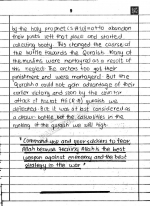 by the holy prophet (S.A.W) not to abandon
their posts left that place and started
collecting booty. This changed the course of
the battle towards the Quraish. Many of
the muslims were martyred as a result of
this neglect. The archers too got their
punishment and were martyred. But the
Quraish could not gain advantage of their
earlier victory and soon by the counter
attack of Hazrat Ali (R.A) quraish was
defeated. But it was at last considered as
a drawn battle, but the casualities in the
ranking of the quraish was high.
"Command you and your soldiers to fear
Allah because fearing Allah is the best
weapon against enemy and the best
strategy in the war"